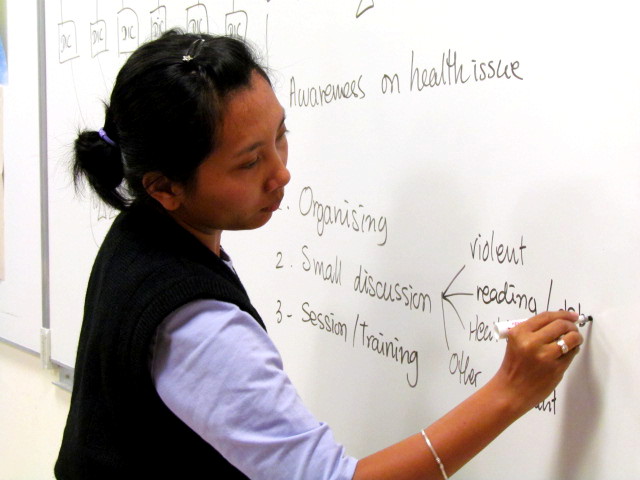 DIC DIC DIC DIC DIC DIC
Awareness on health issue
1. Organising
2. Small discussion
violent
reading /
3- Session/training
Other